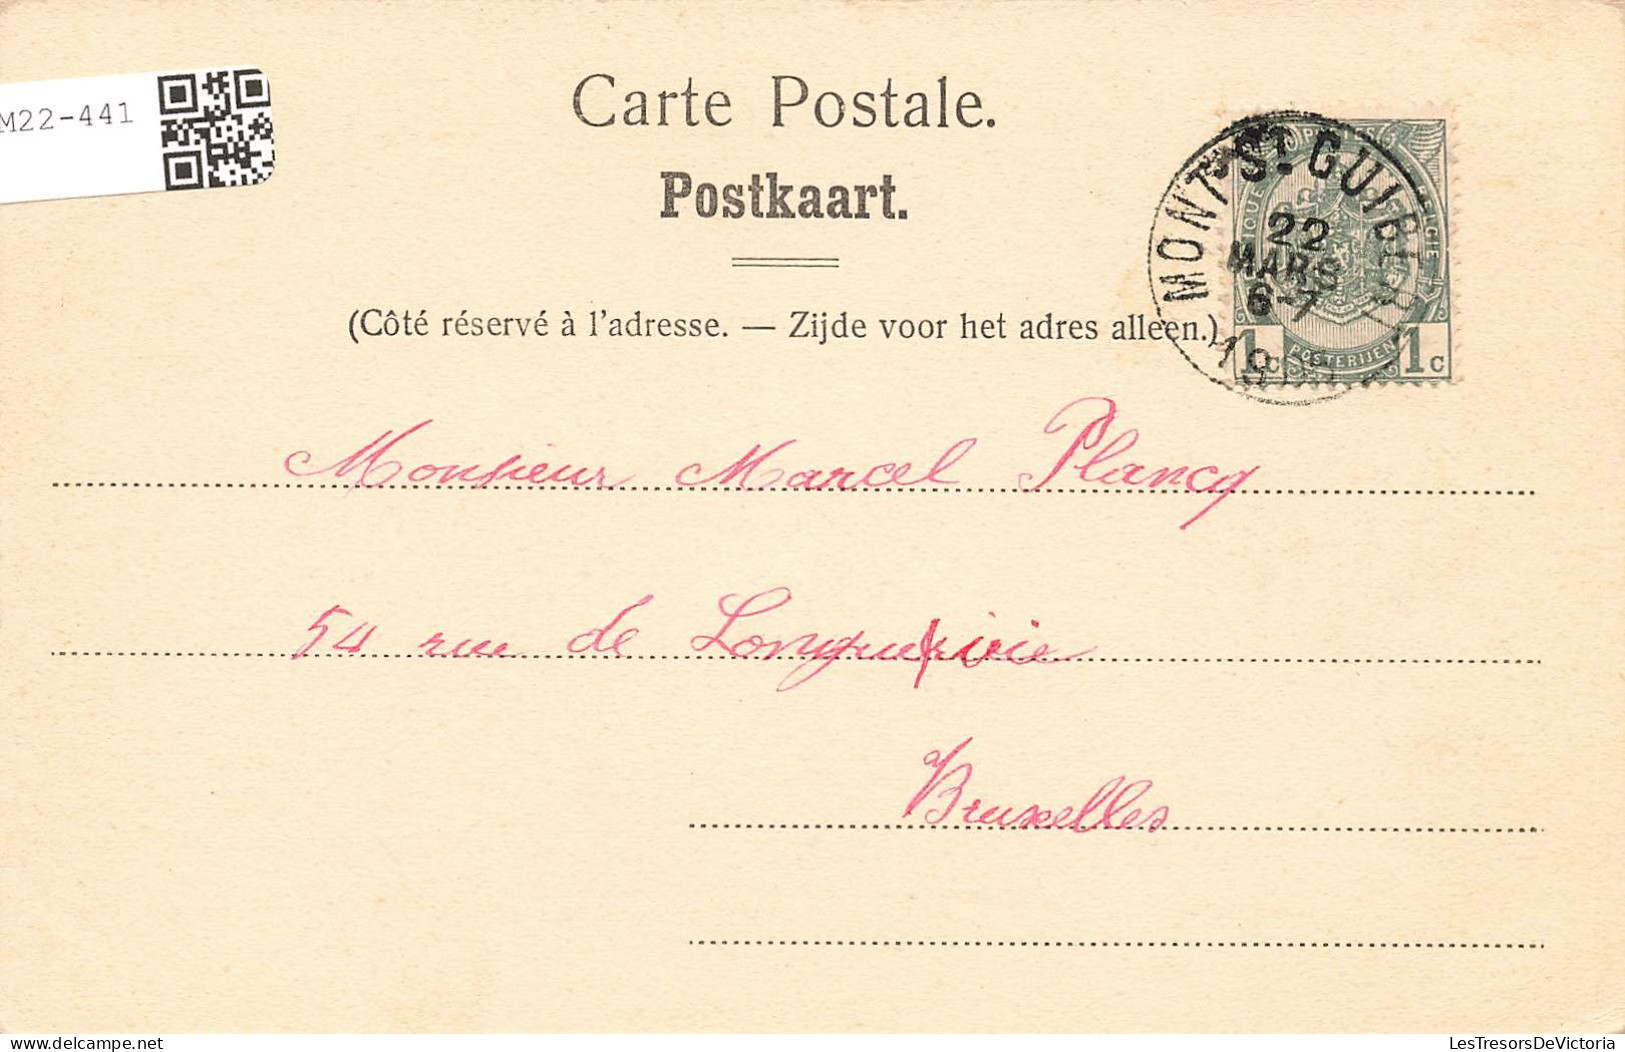 M22-441
Carte Postale.
Postkaart.
(Côté réservé à l'adresse. — Zijde voor het adres alleen.)
MONT-ST-GUIBERT
22
MARS
6-7
POSTERIJEN
1c 1c
Monsieur Marcel Plancq
54 rue de Longue vie
Bruxelles
LesTresorsDeVictoria
delcampe.net